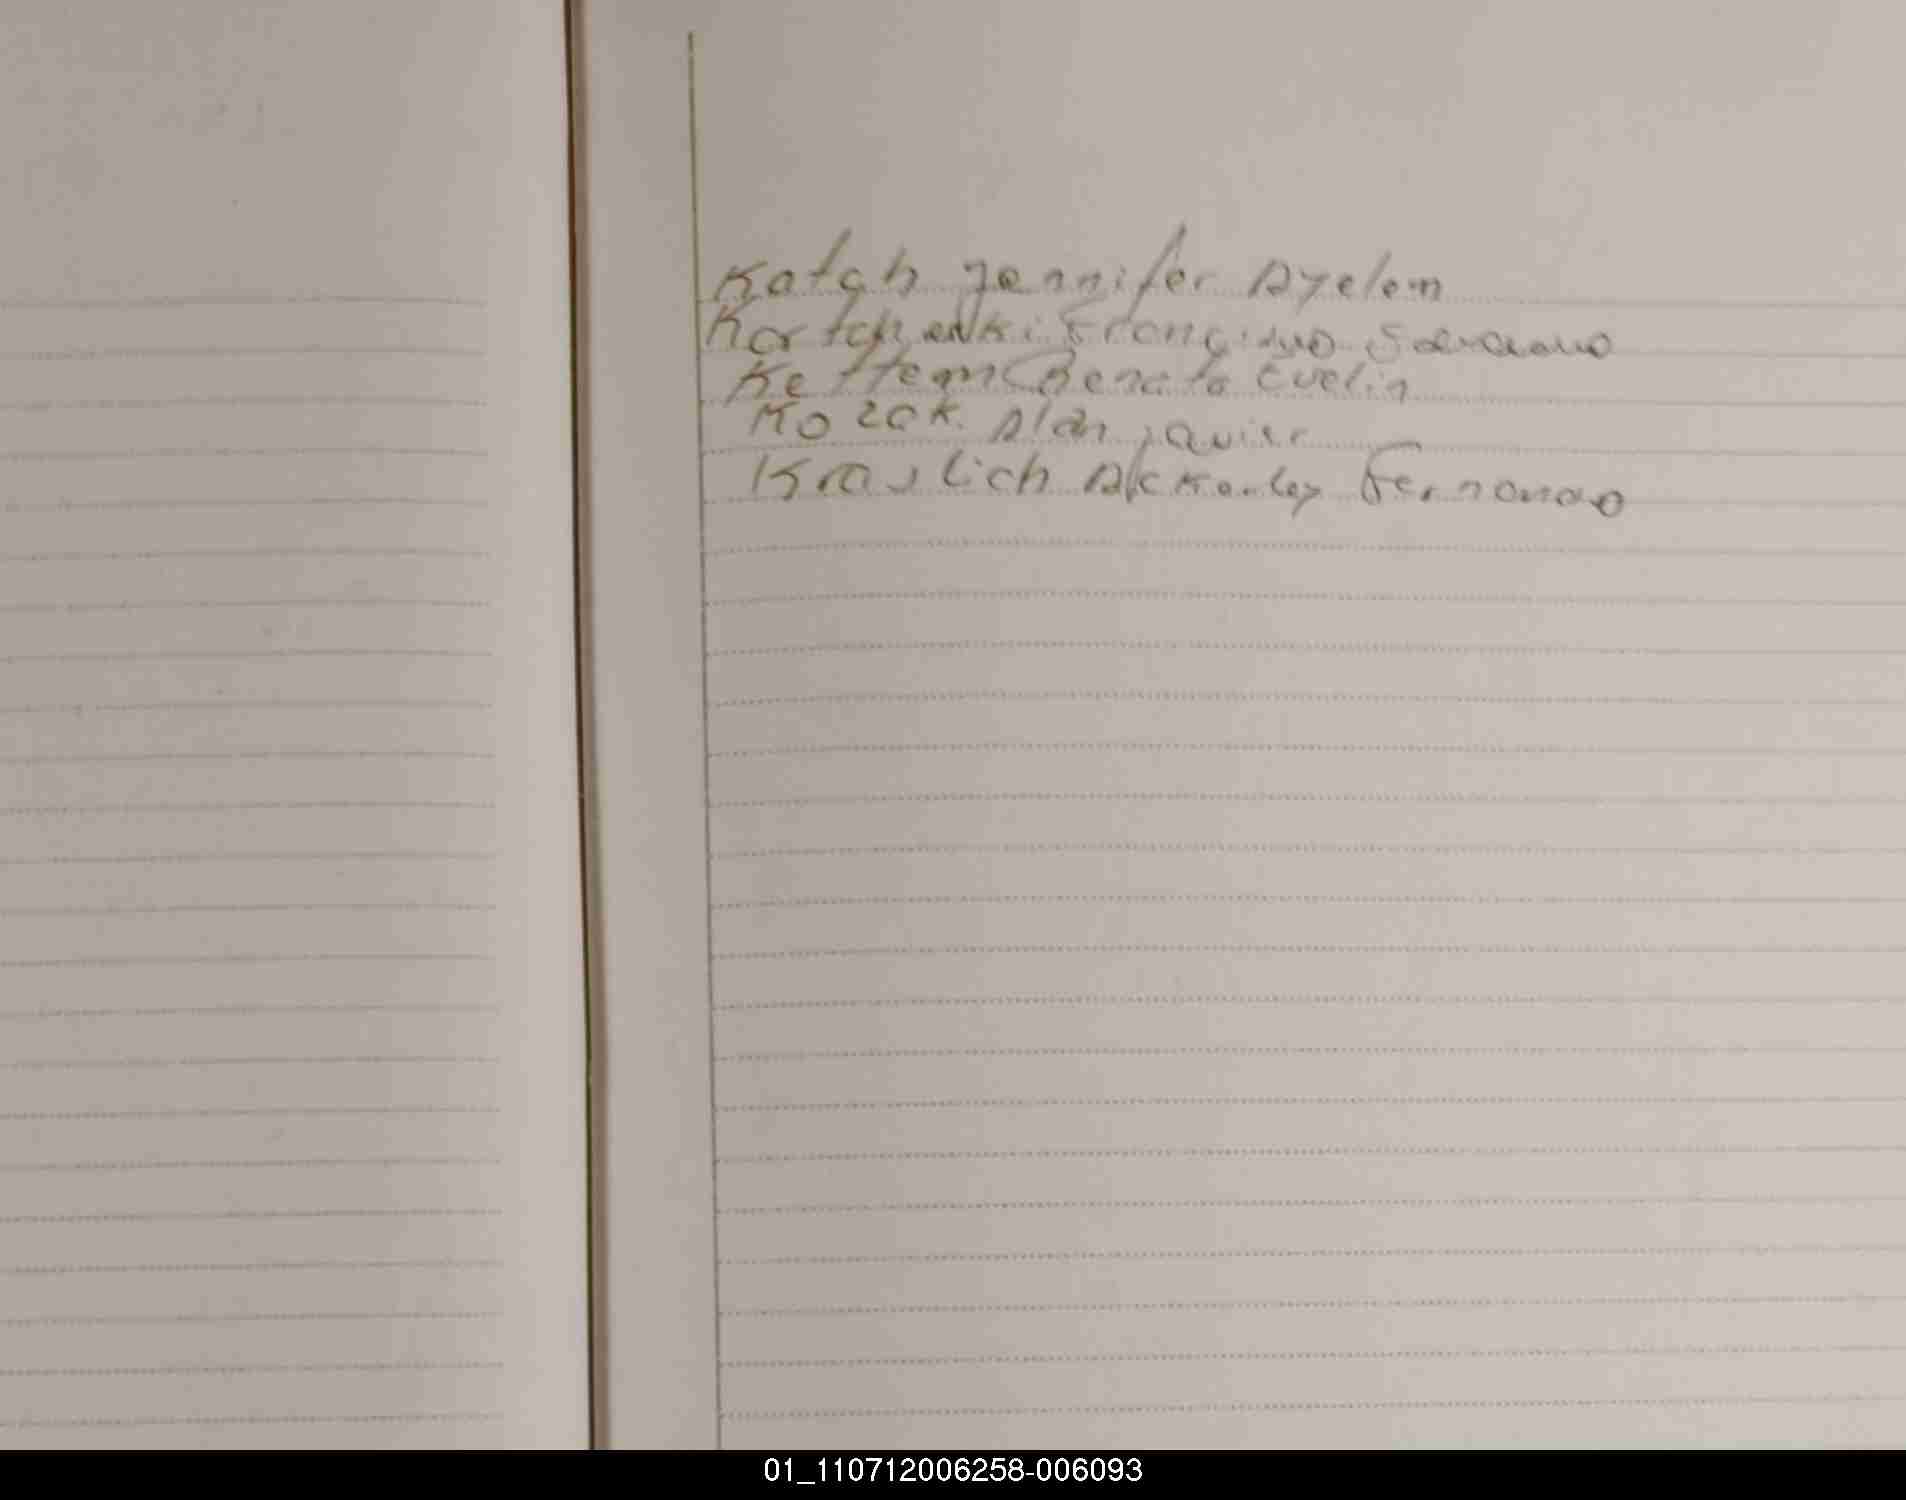 Katah Jennifer Ayelem
Kartchenki Francisco
Kettem Renata Evelin
Kozak Alan javier
Kraslich Fernando
01_110712006258-006093